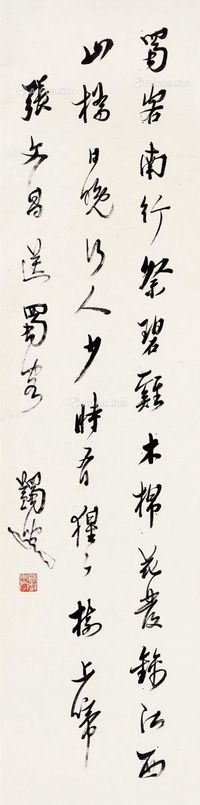 蜀客南行祭碧雞木棉花發錦江西
山橋日晚行人少時有猩〻樹上啼
張文昌送蜀客